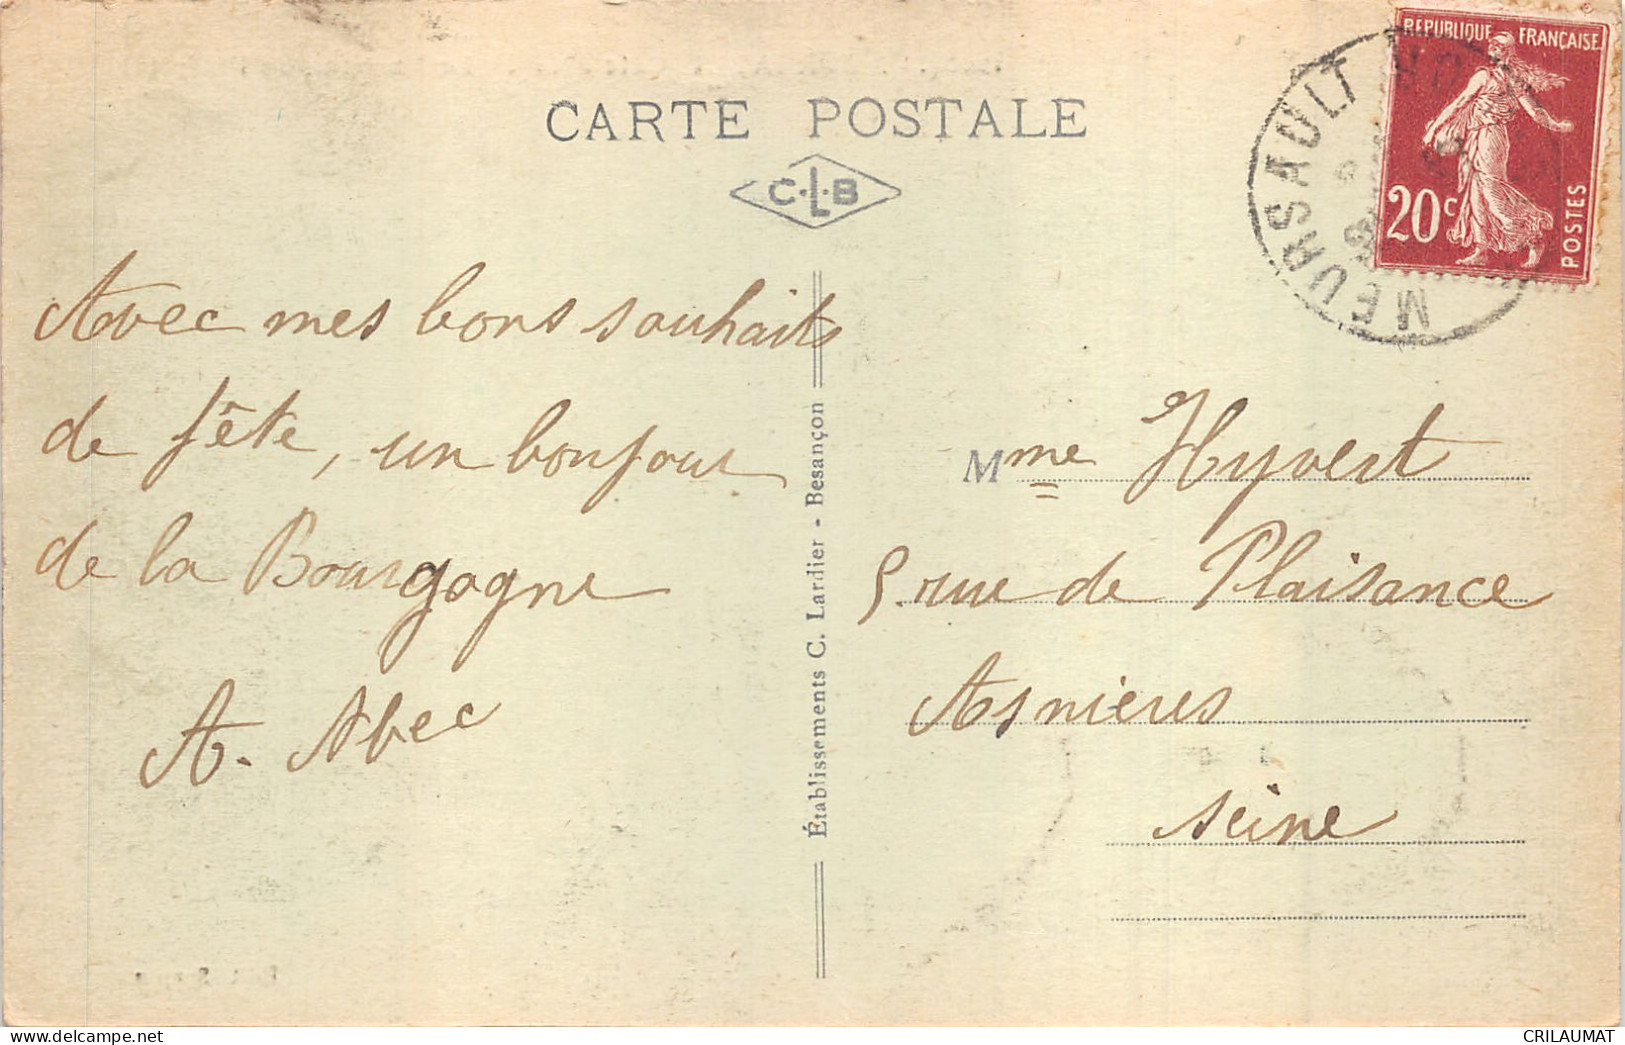 CARTE POSTALE
C·L·B
RÉPUBLIQUE FRANÇAISE
20c
POSTES
MEURSAULT
Avec mes bons souhaits
de fête, un bonjour
de la Bourgogne
A. Abec
Établissements C. Lardier - Besançon
Mme Hyvert
5 rue de Plaisance
Asnières
Seine
CRILAUMAT